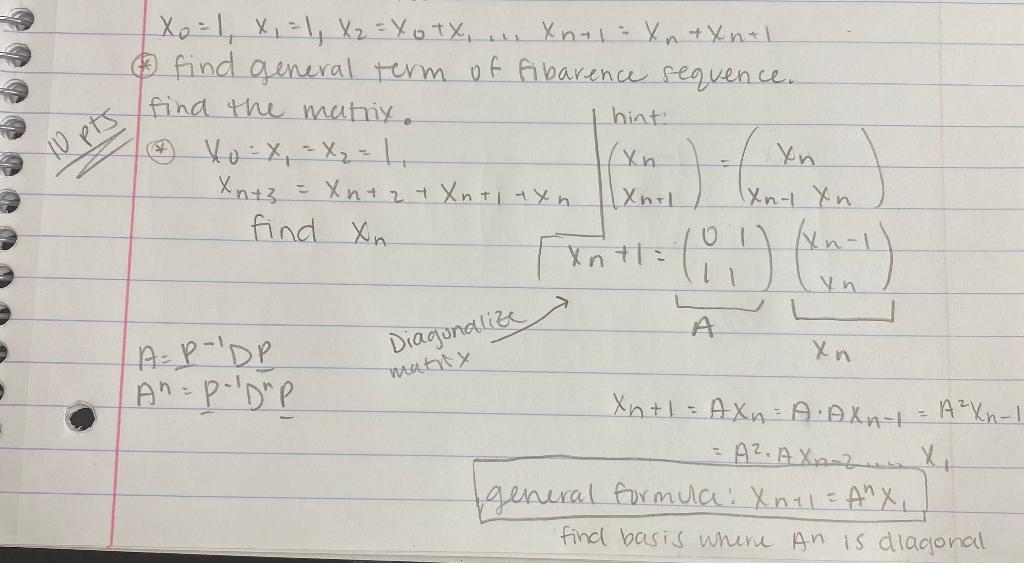 x₀=1, x₁=1, x₂=x₀+x₁ ... xn+1 = xn+xn+1
⊛ find general term of fibarence sequence.
find the matrix.
10 pts
⊛ x₀=x₁=x₂=1,
xn+3 = xn+2 + xn+1 + xn
find xn
hint:
(xn xn+1) = (xn xn-1 xn)
xn+1 = (0 1 1 1) (xn-1 xn)
A xn
Diagonalize
matrix
A=P⁻¹DP
Aⁿ=P⁻¹DⁿP
xn+1 = Axn = A·Axn-1 = A²xn-1
= A²·Axn-2 .... x₁
general formula: xn+1 = Aⁿx₁
find basis where An is diagonal